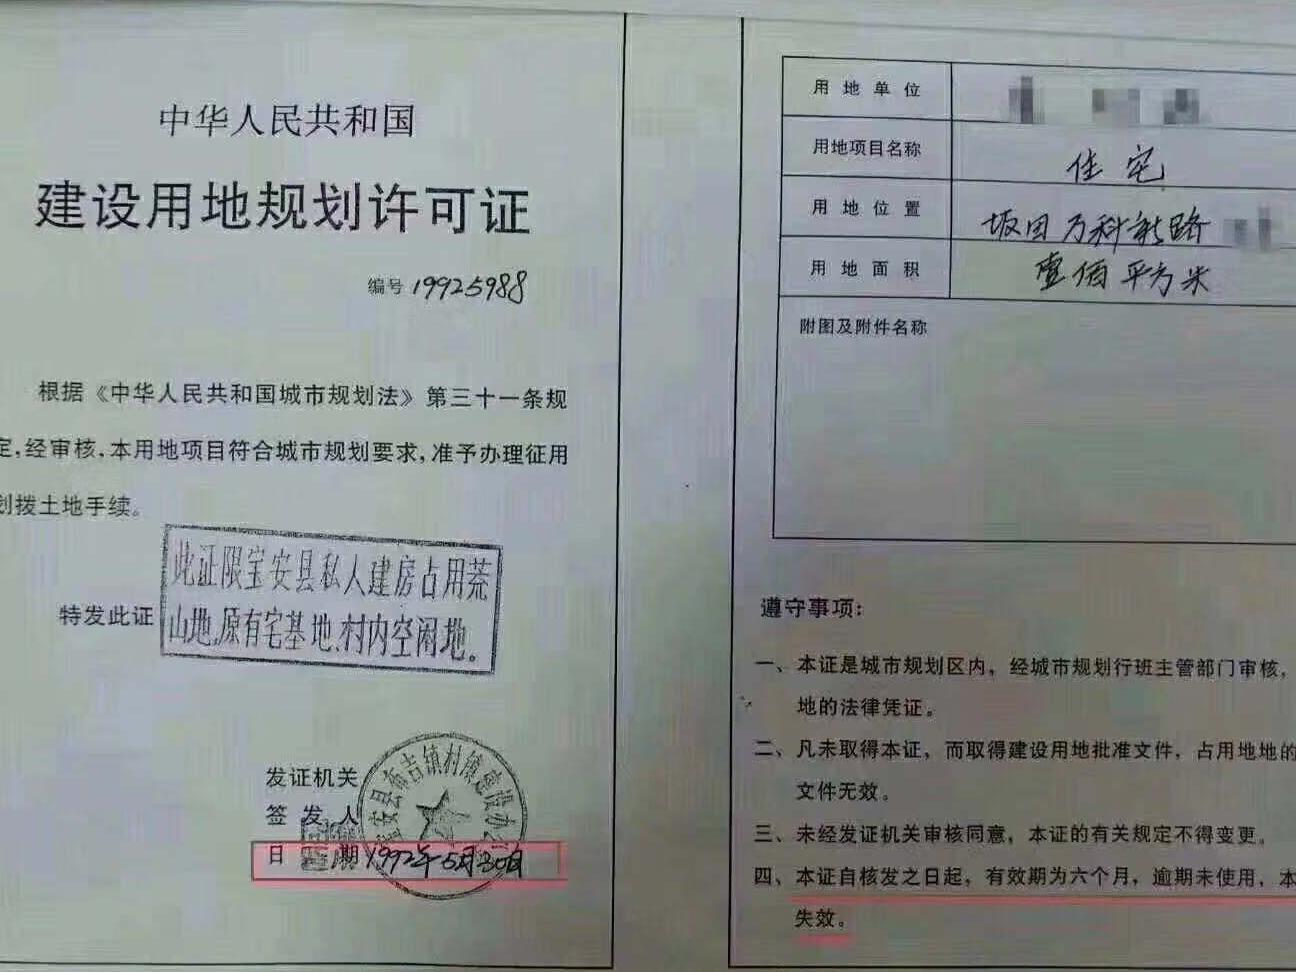 中华人民共和国
建设用地规划许可证
编号 19925988
根据《中华人民共和国城市规划法》第三十一条规
定,经审核,本用地项目符合城市规划要求,准予办理征用
划拨土地手续。
特发此证
此证限宝安县私人建房占用荒
山地、原有宅基地、村内空闲地。
发证机关
宝安县布吉镇村镇建设办公
签发人
日期 1992年5月30日
用地单位
用地项目名称 住宅
用地位置 坂田万科新路
用地面积 壹佰平方米
附图及附件名称
遵守事项:
一、本证是城市规划区内，经城市规划行班主管部门审核，
地的法律凭证。
二、凡未取得本证，而取得建设用地批准文件，占用地地的
文件无效。
三、未经发证机关审核同意，本证的有关规定不得变更。
四、本证自核发之日起，有效期为六个月，逾期未使用，本
失效。